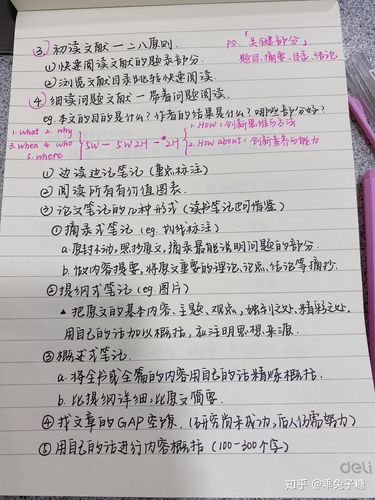 ③ 初读文献—二八原则.
PS.「关键部分」
① 快速阅读文献的题录部分.
题目、摘要、目录、结论
② 浏览文献目录跳转快速阅读.
④ 细读问题文献—带着问题阅读.
eg. 本文的目的是什么? 作者的结果是什么? 哪些部分好?
1. what 2. why
3. when 4. who
5. where
5W-5W2H-*2H
1. How: 创新思维与方法
2. How about: 创新素养与能力
① 边读边记笔记 (重点标注)
② 阅读所有有价值图表.
③ 论文笔记的几种形式 (读书笔记可借鉴)
① 摘录式笔记 (eg. 划线标注)
a. 原封不动, 照抄原文, 摘录最能说明问题的部分.
b. 做内容提要, 将原文重要的理论、论点、结论等摘抄.
② 提纲式笔记 (eg. 图片)
▲ 把原文的基本内容、主题、观点, 独到之处、精彩之处,
用自己的话加以概括, 应注明思想来源.
③ 概述式笔记.
a. 将全书或全篇的内容用自己的话精炼概括.
b. 比提纲详细, 比原文简要.
④ 找文章的GAP空隙. (研究尚未成功, 后人仍需努力)
⑤ 用自己的话进行内容概括 (100-300个字)
deli
知乎 @乖兔子糖